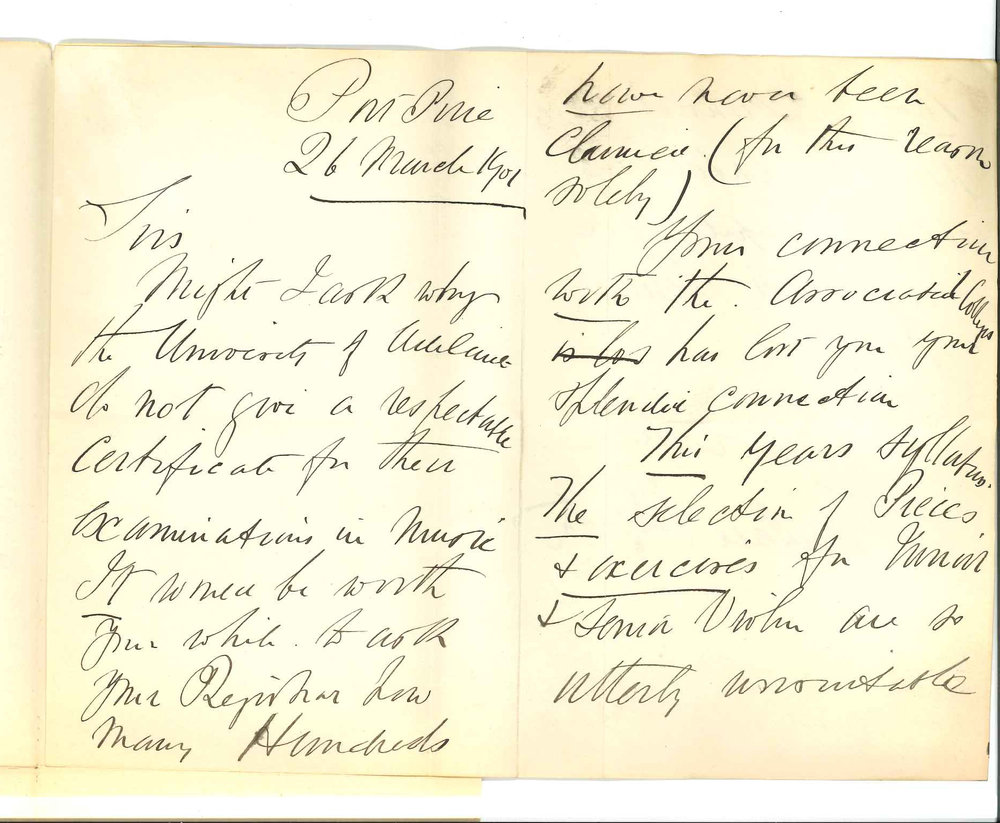 Port Pirie
26 March 1901
Sirs
Might I ask why
the University of Adelaide
do not give a respectable
Certificate for their
examinations in Music
It would be worth
your while to ask
your Registrar how
many Hundreds
have never been
claimed. (for this reason
solely)
Your connection
with the Associated Colleges
is los has lost you your
splendid connection
This years syllabus.
The selection of Pieces
& exercises for Junior
& Senior Violin are so
utterly unsuitable